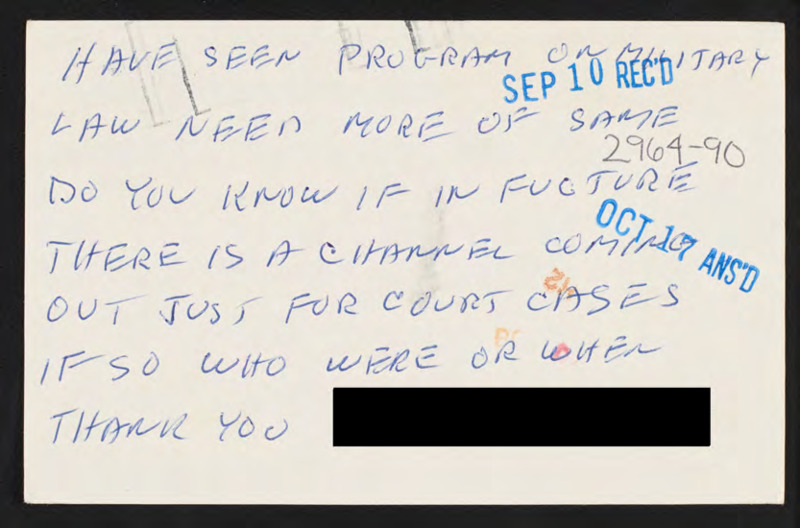 HAVE SEEN PROGRAM ON MILITARY
SEP 10 REC'D
LAW NEED MORE OF SAME
2964-90
DO YOU KNOW IF IN FUCTURE
OCT 17 ANS'D
THERE IS A CHANNEL COMING
OUT JUST FOR COURT CASES
IF SO WHO WERE OR WHEN
THANK YOU